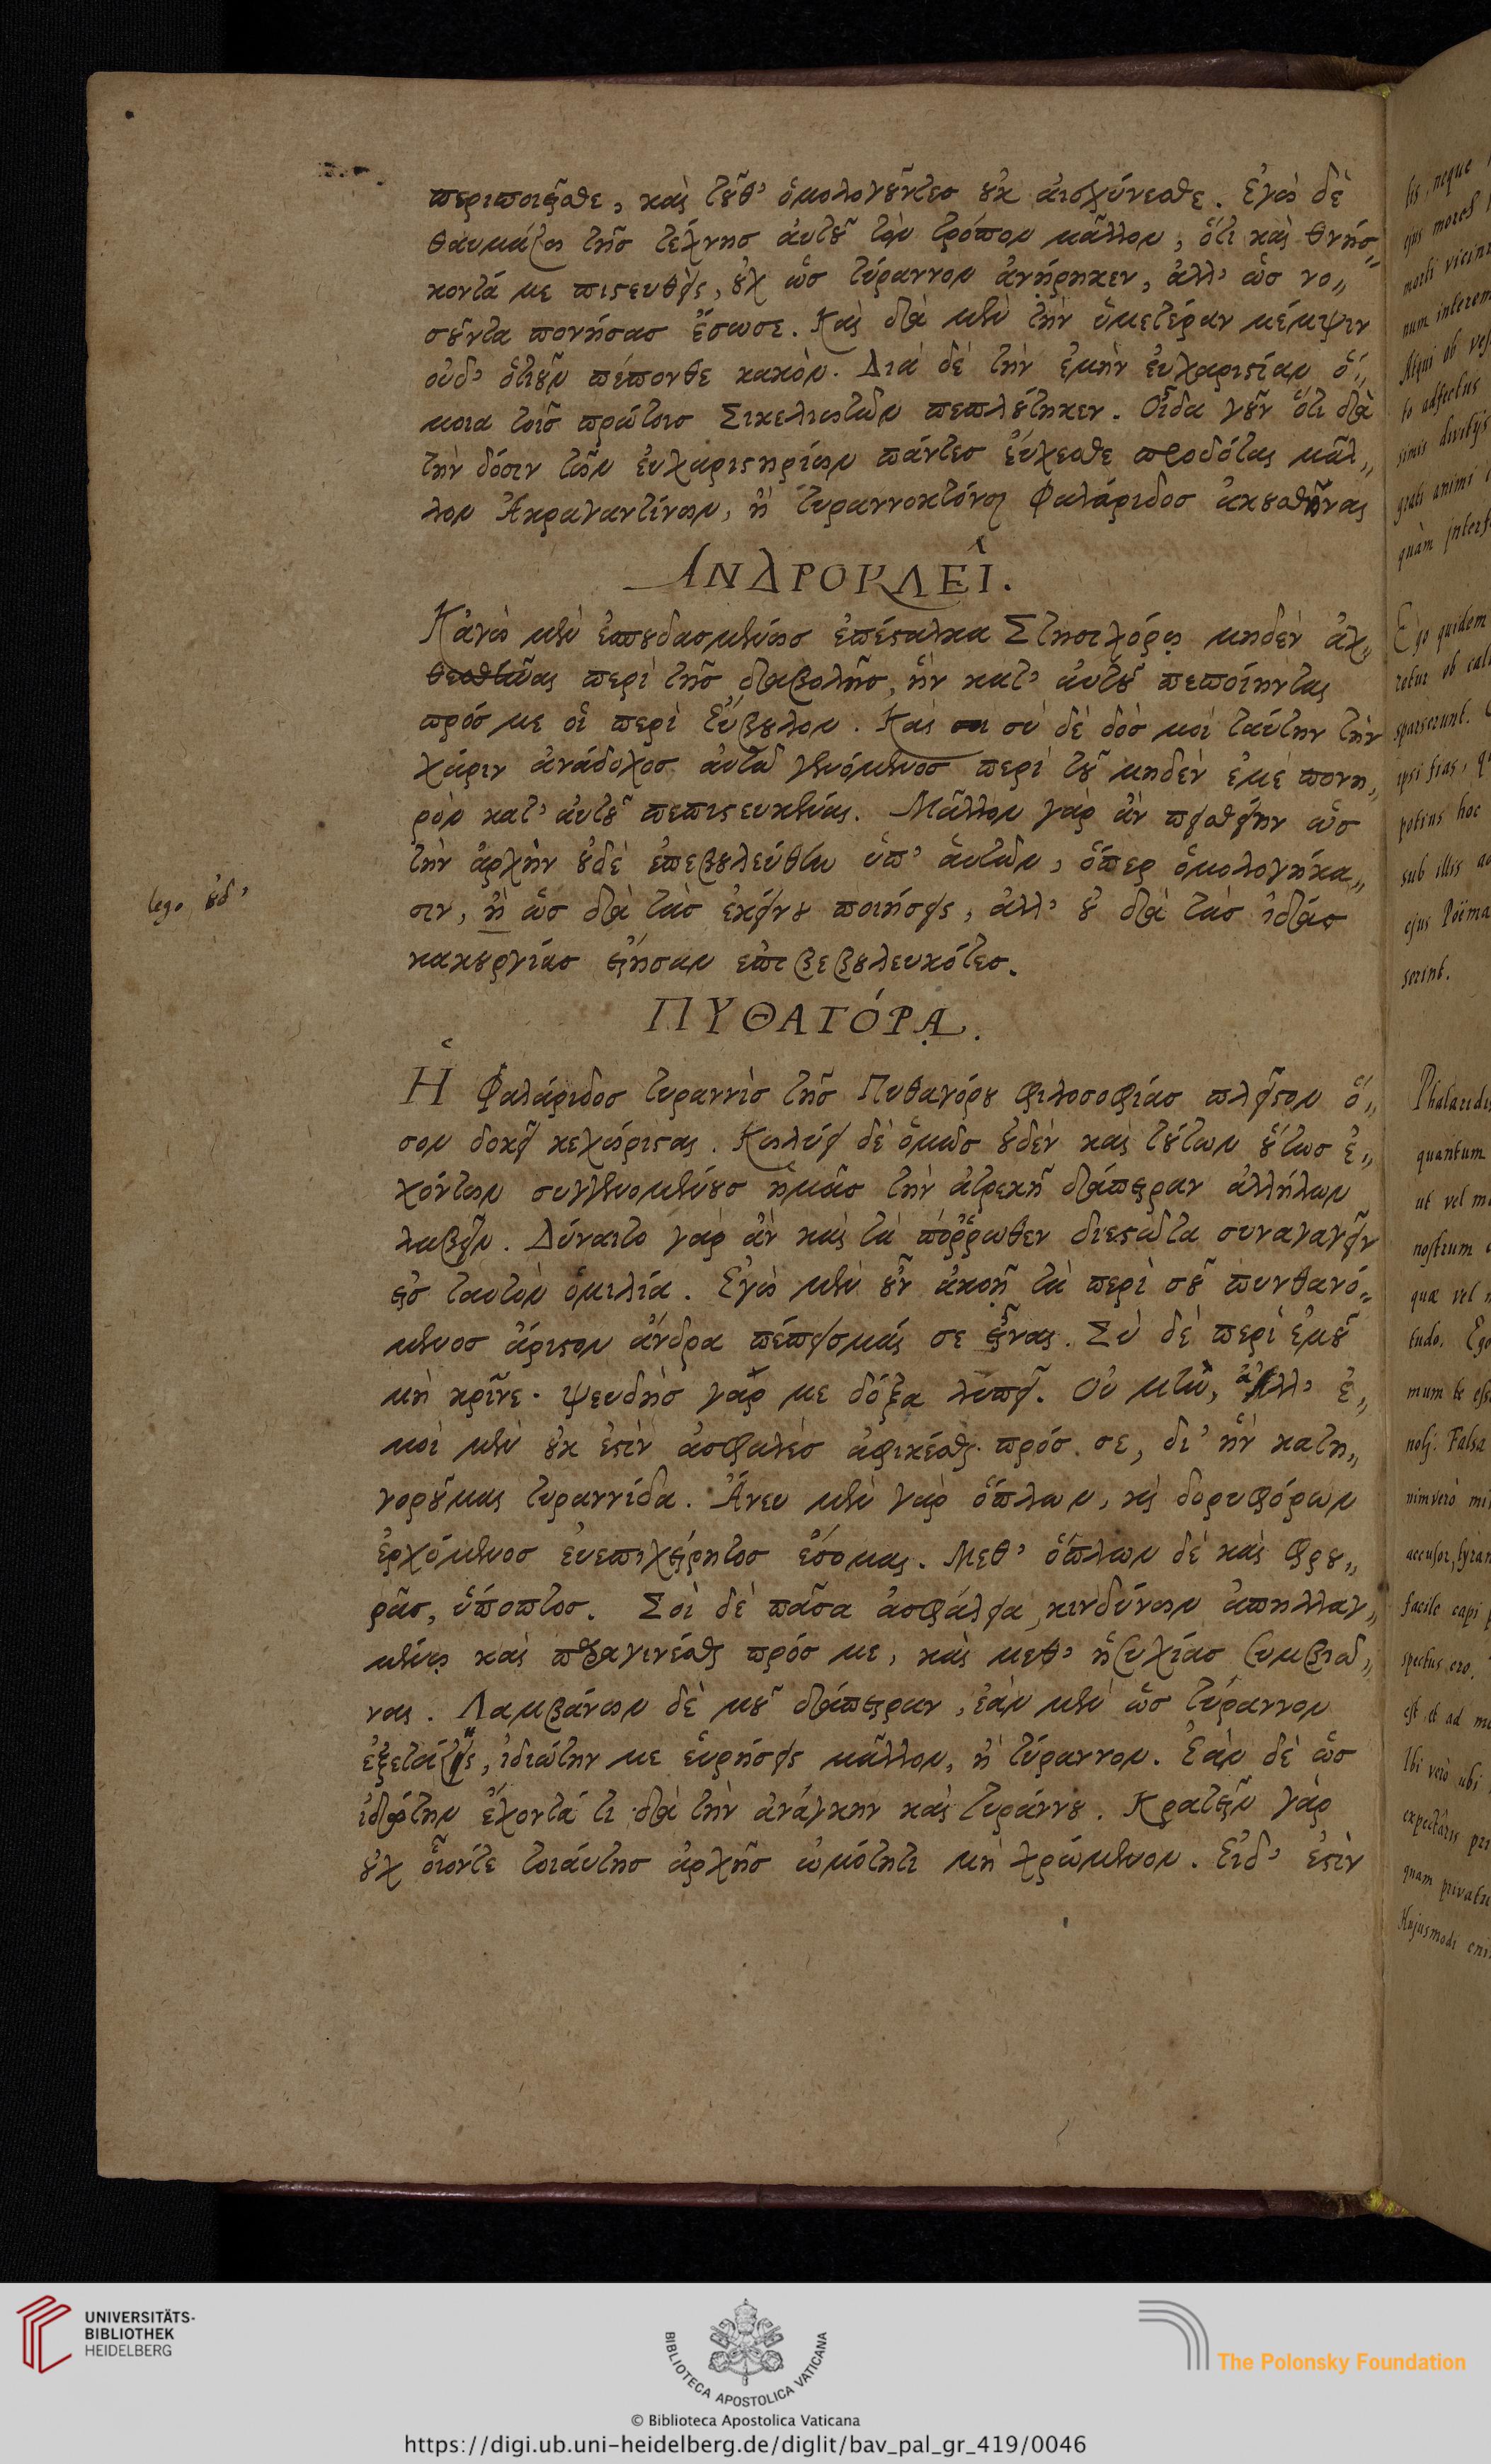 περιποιεῖσθε, καὶ τοῦθ' ὁμολογοῦντες οὐκ αἰσχύνεσθε. Ἐγὼ δὲ
θαυμάζω τῆς τέχνης αὐτοῦ τὸν τρόπον μᾶλλον, ὅτι καὶ θνήσ„
κοντά με πιστευθεὶς, οὐχ ὡς τύραννον ἀνῄρηκεν, ἀλλ' ὡς νο„
σοῦντα πονήσας ἔσωσε. Καὶ διὰ μὲν τὴν ὑμετέραν μέμψιν
οὐδ' ὁτιοῦν πέπονθε κακὸν. Διὰ δὲ τὴν ἐμὴν εὐχαριστίαν ὅ„
μοια τοῖς πρώτοις Σικελιωτῶν πεπλούτηκεν. Οἶδα γοῦν ὅτι διὰ
τὴν δόσιν τῶν εὐχαριστηρίων πάντες εὔχεσθε προδόται μᾶλ„
λον Ἀκραγαντίνων, ἢ τυραννοκτόνοι Φαλάριδος ἀκουσθῆναι
ΑΝΔΡΟΚΛΕῖ.
Κἀγὼ μὲν ἐσπουδασμένως ἐπέσταλκα Στησιχόρῳ μηδὲν ἀχ„
θεσθῆναι περὶ τῆς διαβολῆς, ἣν κατ' αὐτοῦ πεποίηνται
πρός με οἱ περὶ Εὔβουλον. Καὶ σὺ δὲ δός μοι ταύτην τὴν
χάριν ἀνάδοχος αὐτῷ γενόμενος περὶ τοῦ μηδὲν ἐμὲ πονη„
ρὸν κατ' αὐτοῦ πεπιστευκέναι. Μᾶλλον γὰρ ἂν πεισθείην ὡς
τὴν ἀρχὴν οὐδὲ ἐπεβουλεύθην ὑπ' αὐτῶν, ὅπερ ὁμολογήκα„
σιν, ἢ ὡς διὰ τὰς ἐκείνου ποιήσεις, ἀλλ' οὐ διὰ τὰς ἰδίας
lego οὐδ'
κακουργίας εἴησαν ἐπιβεβουλευκότες.
ΠΥΘΑΓΌΡᾼ.
Ἡ Φαλάριδος τυραννὶς τῆς Πυθαγόρου φιλοσοφίας πλεῖστον ὅ„
σον δοκεῖ κεχώρισται. Κωλύει δὲ ὅμως οὐδὲν καὶ τούτων οὕτως ἐ„
χόντων συγγενομένους ἡμᾶς τὴν ἀτρεκῆ διάπειραν ἀλλήλων
λαβεῖν. Δύναιτο γὰρ ἂν καὶ τὰ πόῤῥωθεν διεστῶτα συναγαγεῖν
εἰς ταυτὸν ὁμιλία. Ἐγὼ μὲν οὖν ἀκοῇ τὰ περὶ σοῦ πυνθανό„
μενος ἄριστον ἄνδρα πέπεισμαί σε εἶναι. Σὺ δὲ περὶ ἐμοῦ
μὴ κρῖνε. ψευδὴς γάρ με δόξα λυπεῖ. Οὐ μὴν, ἀλλ' ἐ„
μοὶ μὲν οὐκ ἐστὶν ἀσφαλὲς ἀφικέσθαι πρός σε, δι' ἣν κατη„
γοροῦμαι τυραννίδα. Ἄνευ μὲν γὰρ ὅπλων, καὶ δορυφόρων
ἐρχόμενος εὐεπιχείρητος ἔσομαι. Μεθ' ὅπλων δὲ καὶ φρου„
ρᾶς, ὕποπτος. Σοὶ δὲ πᾶσα ἀσφάλεια κινδύνων ἀπηλλαγ„
μένῳ καὶ παραγινέσθαι πρός με, καὶ μεθ' ἡσυχίας συμβιῶ„
ναι. Λαμβάνων δὲ μοῦ διάπειραν, ἐὰν μὲν ὡς τύραννον
ἐξετάζῃς, ἰδιώτην με εὑρήσεις μᾶλλον, ἢ τύραννον. Ἐὰν δὲ ὡς
ἰδιώτην ἔχοντά τι διὰ τὴν ἀνάγκην καὶ τυράννου. Κρατεῖν γὰρ
οὐχ οἷόντε τοιαύτης ἀρχῆς ὠμότητι μὴ χρώμενον. Εἰδ' ἐστὶν
lis, neque
ejus mores
morti vicin
num interem
Atqui ob ves
to adfectus
simis divitijs
grati animi
quàm interf
Ego quidem
retur ob cal
sparserunt.
ipsi fias, q
potius hoc
sub illis
ejus Poëma
serint.
Phalarid
quantum
ut vel m
nostrum
quæ vel
tudo. Ego
mum te ess
noli: Falsa
nimvero mi
accusor, tyran
facile capi
spectus ero.
est et ad me
Ibi verò ubi
expectâris pr
quam privatu
Hujusmodi eni
UNIVERSITÄTS-
BIBLIOTHEK
HEIDELBERG
BIBLIOTECA APOSTOLICA VATICANA
The Polonsky Foundation
© Biblioteca Apostolica Vaticana
https://digi.ub.uni-heidelberg.de/diglit/bav_pal_gr_419/0046